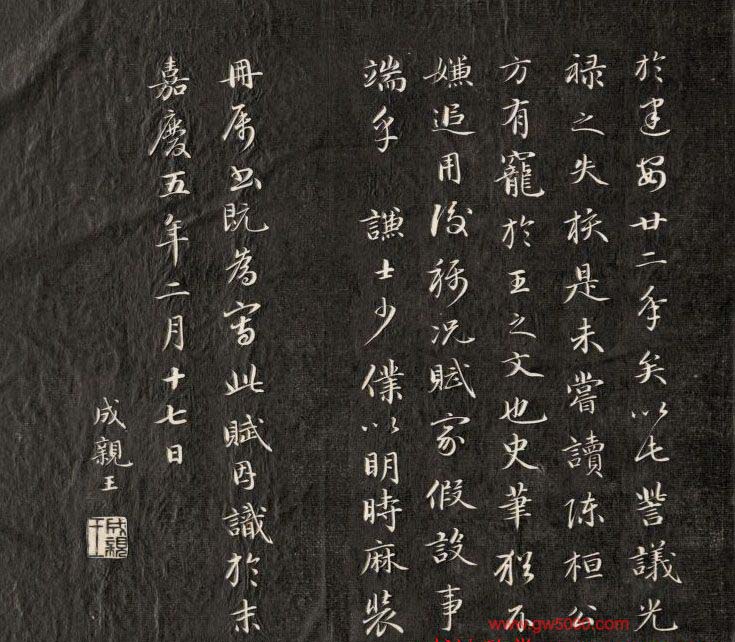 於建安廿二年矣以此訾議光
禄之失核是未嘗讀陈桓公
方有寵於王之文也史筆猶不
嫌追用後稱况賦家假設事
端乎 謙士少僕以明時麻裝
冊属书既為寫此賦因識於末
嘉慶五年二月十七日
成親王
成親王